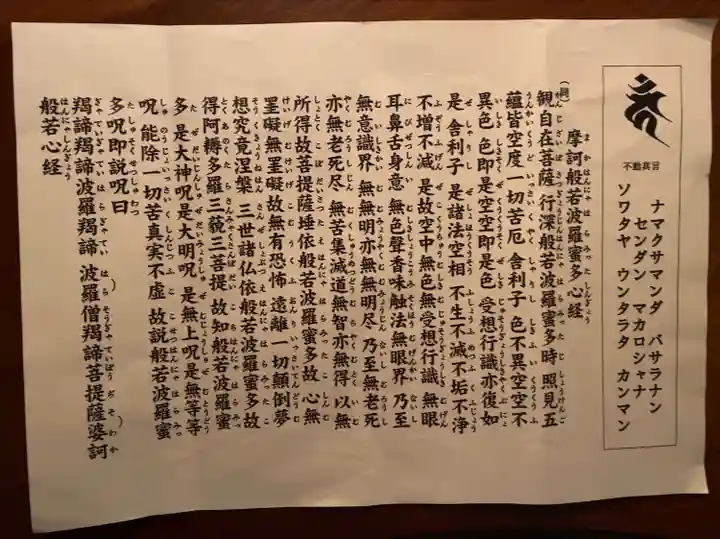 不動真言
ナマクサマンダ バサラナン
センダン マカロシャナ
ソワタヤ ウンタラタ カンマン
摩訶般若波羅蜜多心経
観自在菩薩 行深般若波羅蜜多時 照見五
蘊皆空度一切苦厄 舎利子 色不異空空不
異色 色即是空空即是色 受想行識亦復如
是 舎利子 是諸法空相 不生不滅不垢不浄
不増不減 是故空中無色無受想行識 無眼
耳鼻舌身意 無色声香味触法無眼界 乃至
無意識界 無無明亦無無明尽 乃至無老死
亦無老死尽 無苦集滅道無智亦無得 以無
所得故菩提薩埵依般若波羅蜜多故 心無
罣礙無罣礙故無有恐怖 遠離一切顛倒夢
想究竟涅槃 三世諸仏依般若波羅蜜多故
得阿耨多羅三藐三菩提 故知般若波羅蜜
多 是大神呪是大明呪 是無上呪是無等等
呪 能除一切苦真実不虚 故説般若波羅蜜
多呪即説呪曰
羯諦羯諦波羅羯諦 波羅僧羯諦菩提薩婆訶
般若心経